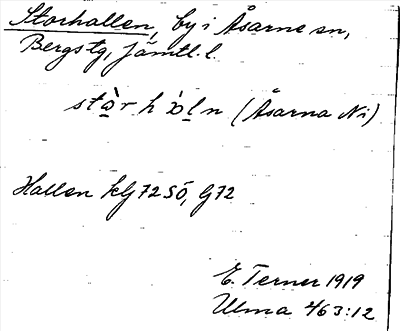 Storhallen, by i Åsarne sn,
Bergs tg, Jämtl. l.
stàr hòln (Åsarna Ni)
Hallen kbj 72 SÖ, G72
E. Terner 1919
Ulma 463:12